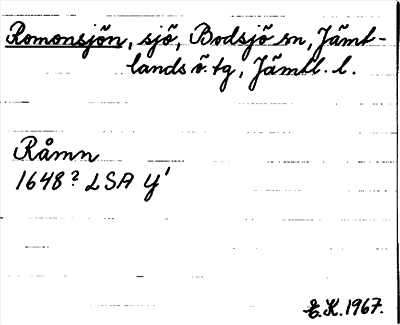 Romonsjön, sjö, Bodsjö sn, Jämt-
lands ö. tg, Jämtl. l.
Råmn
1648? LSA Y'
E.K. 1967.